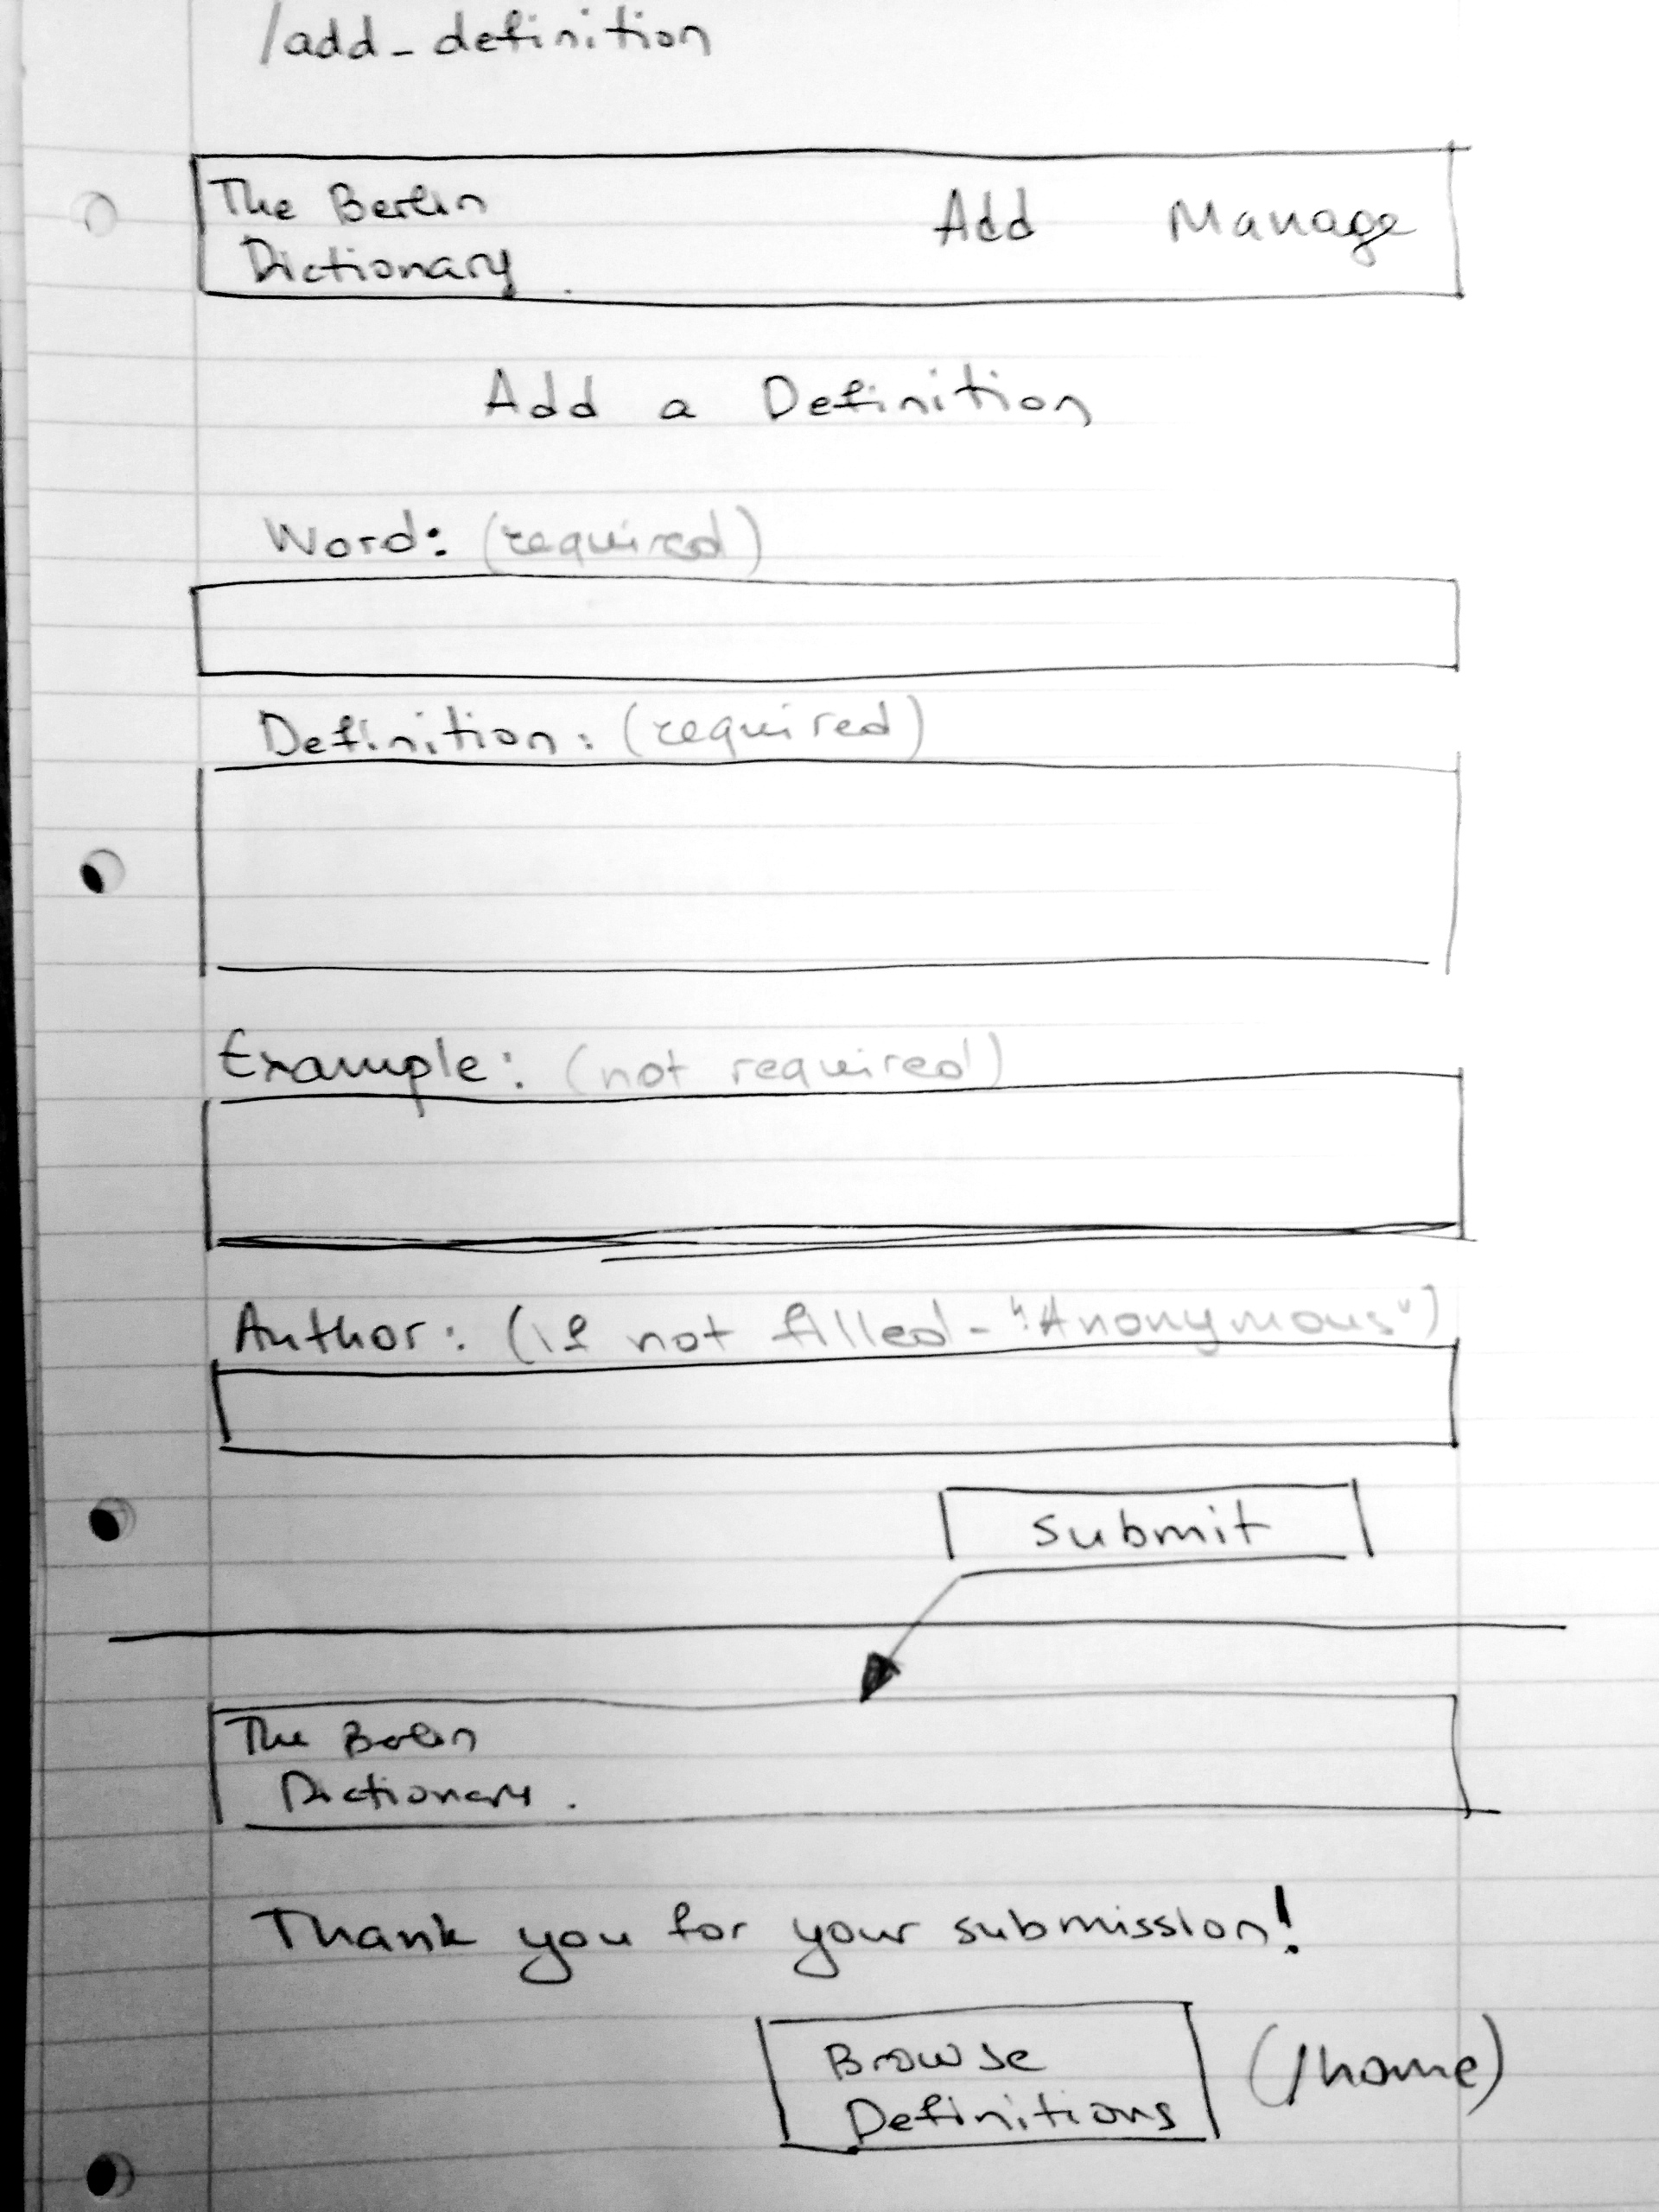 /add_definition
The Berlin
Dictionary.
Add Manage
Add a Definition
Word: (required)
Definition: (required)
Example: (not required)
Author: (if not filled - "Anonymous")
submit
The Berlin
Dictionary.
Thank you for your submission!
Browse
Definitions
(/home)